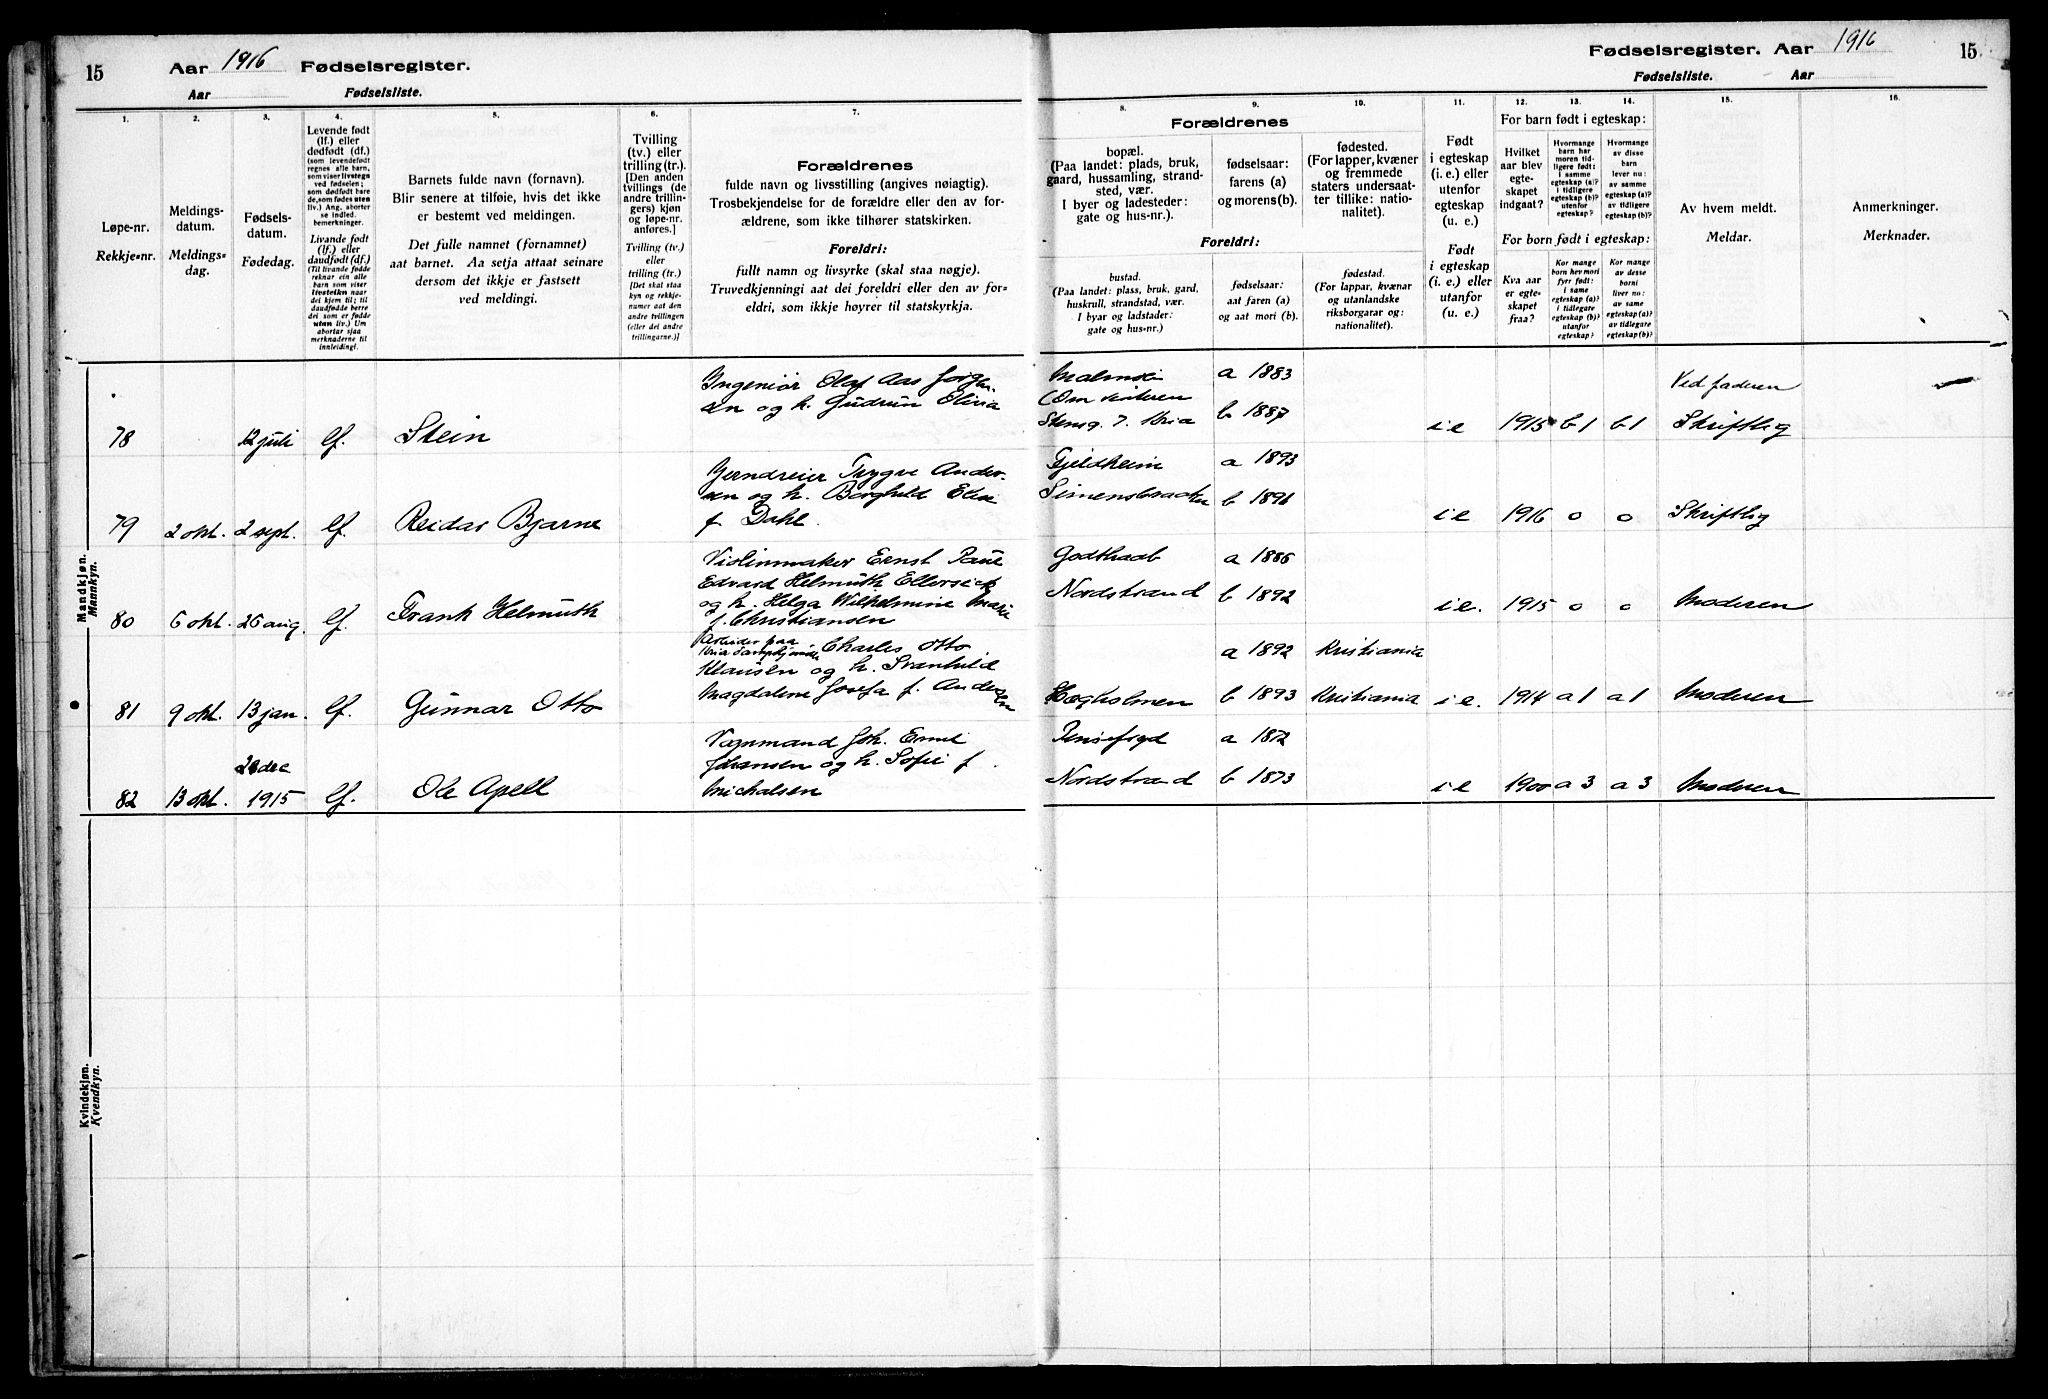 15
Aar 1916 Fødselsregister.
Aar Fødselsliste.
Fødselsregister. Aar 1916
Fødselsliste. Aar
15
1.
Løpe-nr.
Rekkje-nr.
2.
Meldings-
datum.
Meldings-
dag.
3.
Fødsels-
datum.
Fødedag.
4.
Levende født
(lf.) eller
dødfødt (df.)
(som levendefødt
regnes alle barn,
som viser livstegn
ved fødselen;
som dødfødt bare
de, som fødes uten
liv.) Ang. aborter
se indled.
bemerkninger.
Livande født
(lf.) eller
daudfødt (df.)
(Til livande fødde
reknar ein alle
barn som viser
livsteikn naar
dei kjem til; til
daudfødde berre
dei som er fødde
utan liv.) Um
abortar sjaa
merknaderne til
innleiding!.
5.
Barnets fulde navn (fornavn).
Blir senere at tilføie, hvis det ikke
er bestemt ved meldingen.
Det fulle namnet (fornamnet)
aat barnet. Aa setja attaat seinare
dersom det ikkje er fastsett
ved meldingi.
6.
Tvilling
(tv.) eller
trilling (tr.).
[Den anden
tvillings (de
andre trillin-
gers) kjøn
og løpe-nr.
anføres.]
Tvilling (tv.)
eller
trilling (tr.)
[Det skal staa
kyn og rekkje-
numer aat den
andre tvillingen
(eller dei andre
trillingarne.)]
7.
Forældrenes
fulde navn og livsstilling (angives nøiagtig).
Trosbekjendelse for de forældre eller den av for-
ældrene, som ikke tilhører statskirken.
Foreldri:
fullt namn og livsyrke (skal staa nøgje).
Truvedkjenningi aat dei foreldri eller den av for-
eldri, som ikkje høyrer til statskyrkja.
Forældrenes
8.
bopæl.
(Paa landet: plads, bruk,
gaard, hussamling, strand-
sted, vær.
I byer og ladesteder:
gate og hus-nr.).
9.
fødselsaar:
farens (a)
og morens (b).
10.
fødested.
(For lapper, kvæner
og fremmede
staters undersaat-
ter tillike: natio-
nalitet).
Foreldri:
bustad.
(Paa landet: plass, bruk, gard,
huskrull, strandstad, vær.
I byar og ladstader:
gate og hus-nr.)
fødselsaar:
aat faren (a)
og aat mori (b).
fødestad.
(For lappar, kvænar
og utanlandske
riksborgarar og:
nationalitet).
11.
Født
i egteskap
(i. e.) eller
utenfor
egteskap
(u. e.)
Født
i egteskap
(i. e.) eller
utanfor
(u. e.)
For barn født i egteskap:
12.
Hvilket
aar blev
egte-
skapet
indgaat?
13.
Hvormange
barn har
moren tid-
ligere født:
i samme
egteskap (a)?
i tidligere
egteskap (b)?
utenfor
egteskap?
14.
Hvormange
av disse
barn
lever nu:
av samme
egteskap (a)?
av tidligere
egteskap (b)?
For born født i egteskap:
Kva aar
er egte-
skapet
fraa?
Kor mange
born hev mori
fyrr født:
i same
egteskap (a)?
i tidlegare
egteskap (b)?
utanfor
egteskap?
Kor mange
av desse
borni
liver no:
av same
egteskap (a)?
av tidlegare
egteskap (b)?
15.
Av hvem meldt.
Meldar.
16.
Anmerkninger.
Merknader.
Mandkjøn.
Mannkyn.
Kvindekjøn.
Kvendkyn.
78 12 juli lf. Stein
Ingeniør Olaf Aas Jørgen-
sen og h. Gudrun Olivia
(Om vinteren
Stensg. 7. Kria
a 1883
b 1887
i e 1915 b 1 b 1
Ved faderen
Skriftlig
79 2 okt. 2 sept. lf. Reidar Bjarne
Jerndreier Trygve Ander-
sen og h. Borghild Elise
f. Dahl.
Fjeldheim
Simensbraaten
a 1893
b 1891
i e 1916 0 0 Skriftlig
80 6 okt. 26 aug. lf. Frank Helmuth
Violinmaker Ernst Paul
Edvard Helmuth Ellersieck
og h. Helga Wilhelmine Marie
f. Christiansen
Godthaab
Nordstrand
a 1886
b 1892
i e. 1915 0 0 Moderen
81 9 okt. 13 jan. lf. Gunnar Otto
Arbeider paa
Kria Dampkjøkken Charles Otto
Klausen og h. Svanhild
Magdalene Josefa f. Andersen
Hægholmen
a 1892 Kristiania
b 1893 Kristiania
i e. 1914 a 1 a 1 Moderen
82 13 okt. 28 dec 1915 lf. Ole Apell
Vognmand Joh. Emil
Johansen og h. Sofie f.
Michalsen
Nordstrand
a 1872
b 1873
i e 1900 a 3 a 3 Moderen